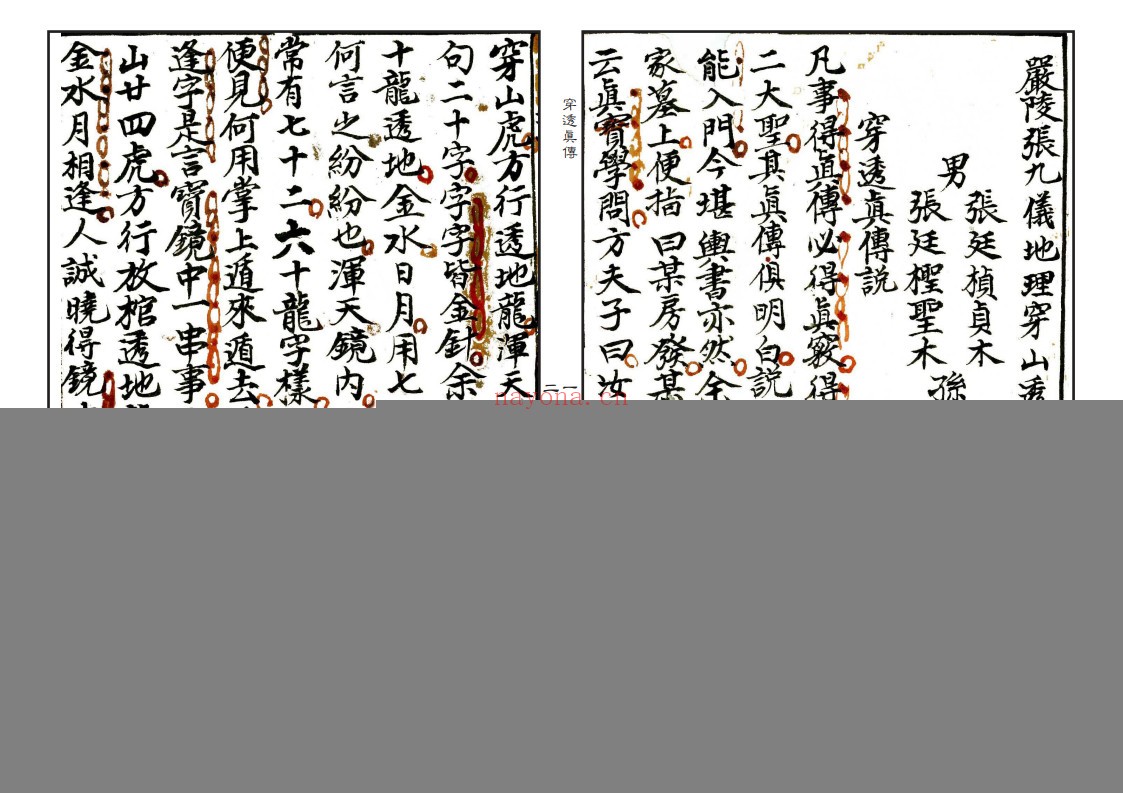 嚴陵張九儀地理穿山透
男
張廷楨貞木
張廷檉聖木
孫
穿透眞傳說
凡事得眞傳必得眞竅得
二大聖其眞傳俱明白說
能入門今堪輿書亦然全
家墓上便指曰某房發某
云眞寳學問方夫子曰汝
穿透眞傳
一
二
穿山虎方行透地龍渾天
句二十字字字皆金針余
十龍透地金水日月用七
何言之紛紛也渾天鏡内
常有七十二六十龍字樣
便見何用掌上遁來遁去
逢字是言寳鏡中一串事
山廿四虎方行放棺透地
金水月相逢人誠曉得鏡
nayona.cn